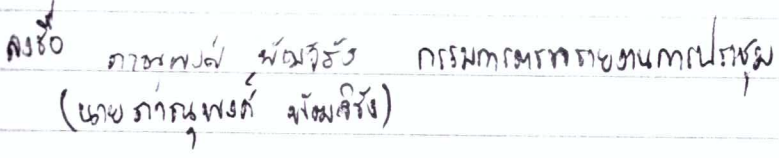 ลงชื่อ ภาณุพงศ์ พัฒจิรัง กรรมการตรวจรายงานการประชุม
(นายภาณุพงศ์ พัฒจิรัง)